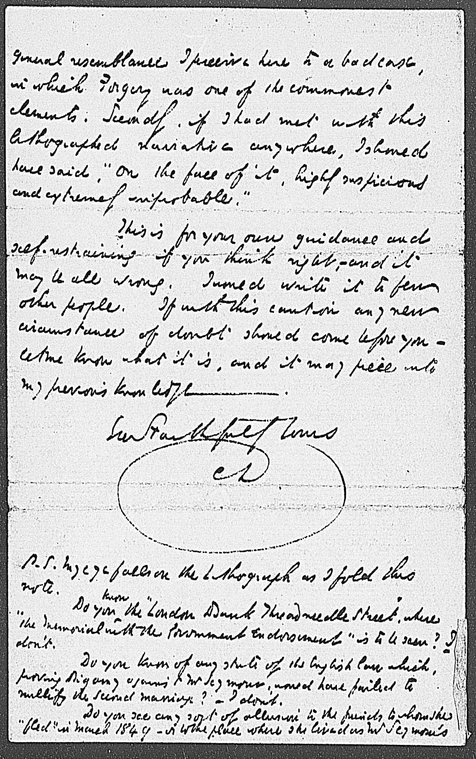 general resemblance I perceive here to a bad case,
in which Forgery was one of the commonest
elements. Secondly, if I had met with this
lithographed narrative anywhere, I should
have said, "On the face of it, highly suspicious
and extremely improbable."
This is for your own guidance and
self-restraining if you think right, and it
may be all wrong. I would write it to few
other people. If with this caution any new
circumstance of doubt should come before you –
let me know what it is, and it may piece into
my previous knowledge.
Ever Faithfully Yours
CD
P.S. My eye falls on the Lithograph as I fold this
note.
Do you know the "London Bank Threadneedle Street", where
"the Memorial with the Government Endorsement" is to be seen? I
don't.
Do you know of any state of the English law which,
proving Bigamy against Mr Seymour, would have failed to
nullify the second marriage? – I don't.
Do you see any sort of allusion to the friends to whom she
"fled" in March 1849 – or to the place where she lived as Mr Seymour's